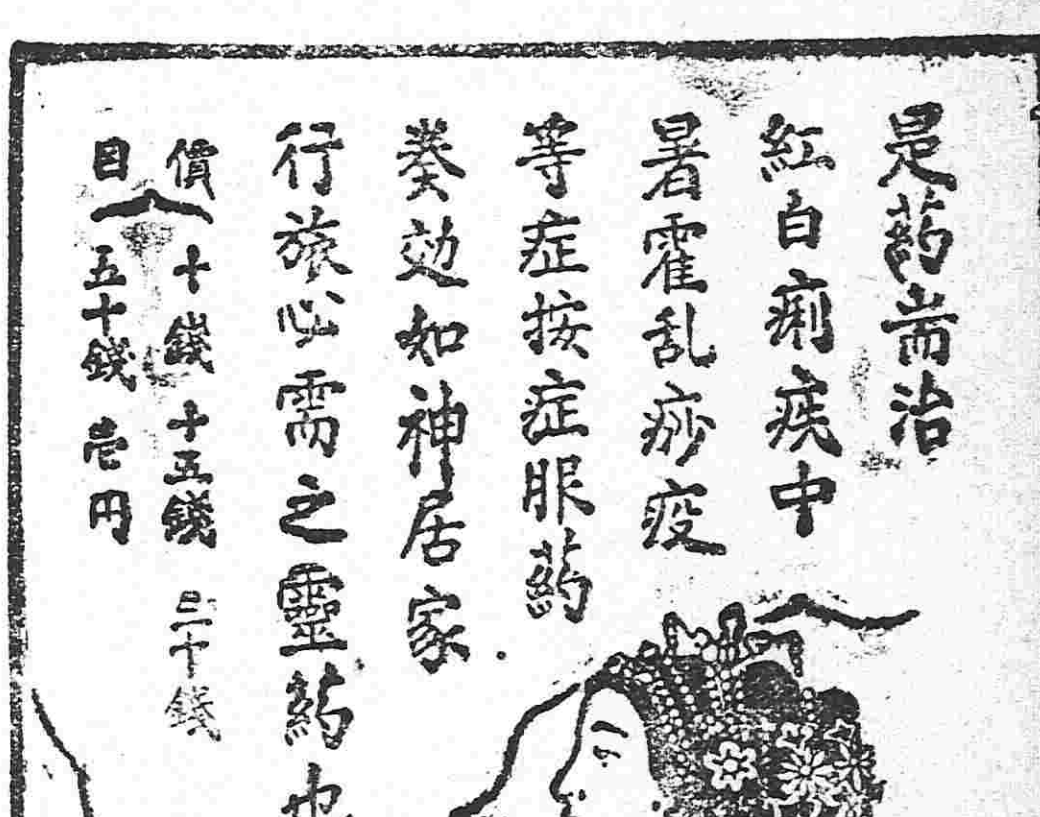 是葯耑治
紅白痢疾中
暑霍乱痧疫
等症按症服葯
奏効如神居家
行旅必需之靈葯也
價目
十錢 十五錢 三十錢
五十錢 壱円